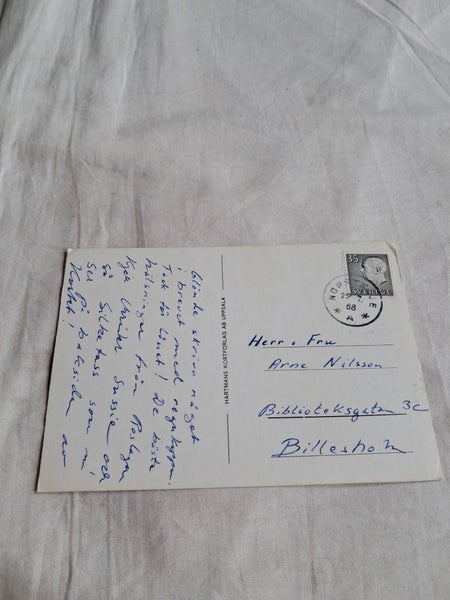 Glömde skriva något
i brevet med regnkappan.
Tack för lånet! De bästa
hälsningar från Roslagen
Ulrika Sussie och
så Silketass som ni
ser på baksidan av
Kortet!
HARTMANS KORTFÖRLAG AB UPPSALA
35
SVERIGE
68
A
Herr o. Fru
Arne Nilsson
Biblioteksgatan 3c
Billesholm